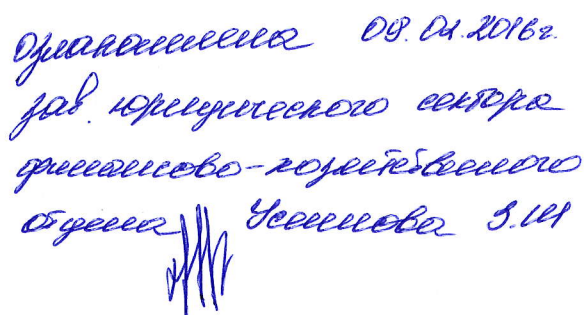 ознакомлена 09.02.2016г.
зав. юридического сектора
финансово-хозяйственного
отдела Усеинова З.Ш